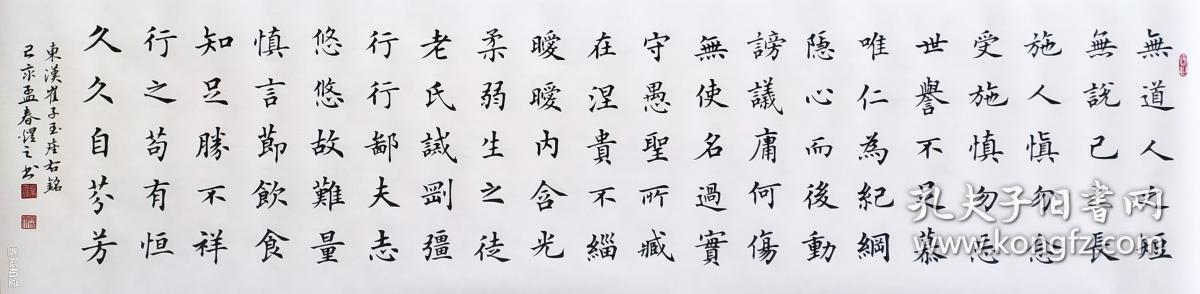 無道人之短
無説己之長
施人慎勿念
受施慎勿忘
世譽不足慕
唯仁為紀綱
隱心而後動
謗議庸何傷
無使名過實
守愚聖所臧
在涅貴不緇
曖曖內含光
柔弱生之徒
老氏誡剛彊
行行鄙夫志
悠悠故難量
慎言節飲食
知足勝不祥
行之苟有恒
久久自芬芳
東漢崔子玉座右銘
己亥孟春之书
孔夫子旧书网
www.kongfz.com